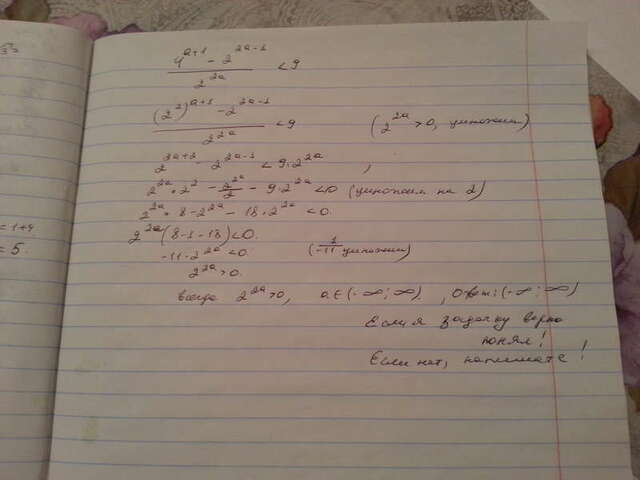 4^(a+1) - 2^(2a-1) / 2^(2a) < 9
(2^2)^(a+1) - 2^(2a-1) / 2^(2a) < 9 (2^(2a) > 0, умножим)
2^(2a+2) - 2^(2a-1) < 9·2^(2a) ,
2^(2a) · 2^2 - 2^(2a)/2 - 9·2^(2a) < 0 (умножим на 2)
2^(2a) · 8 - 2^(2a) - 18·2^(2a) < 0.
2^(2a)(8-1-18) < 0.
-11·2^(2a) < 0. (1/-11 умножим)
2^(2a) > 0.
всегда 2^(2a) > 0, a∈(-∞; ∞). , Ответ: (-∞; ∞)
Если я задачку верно
понял!
Если нет, напишите!
= 1+4
= 5.